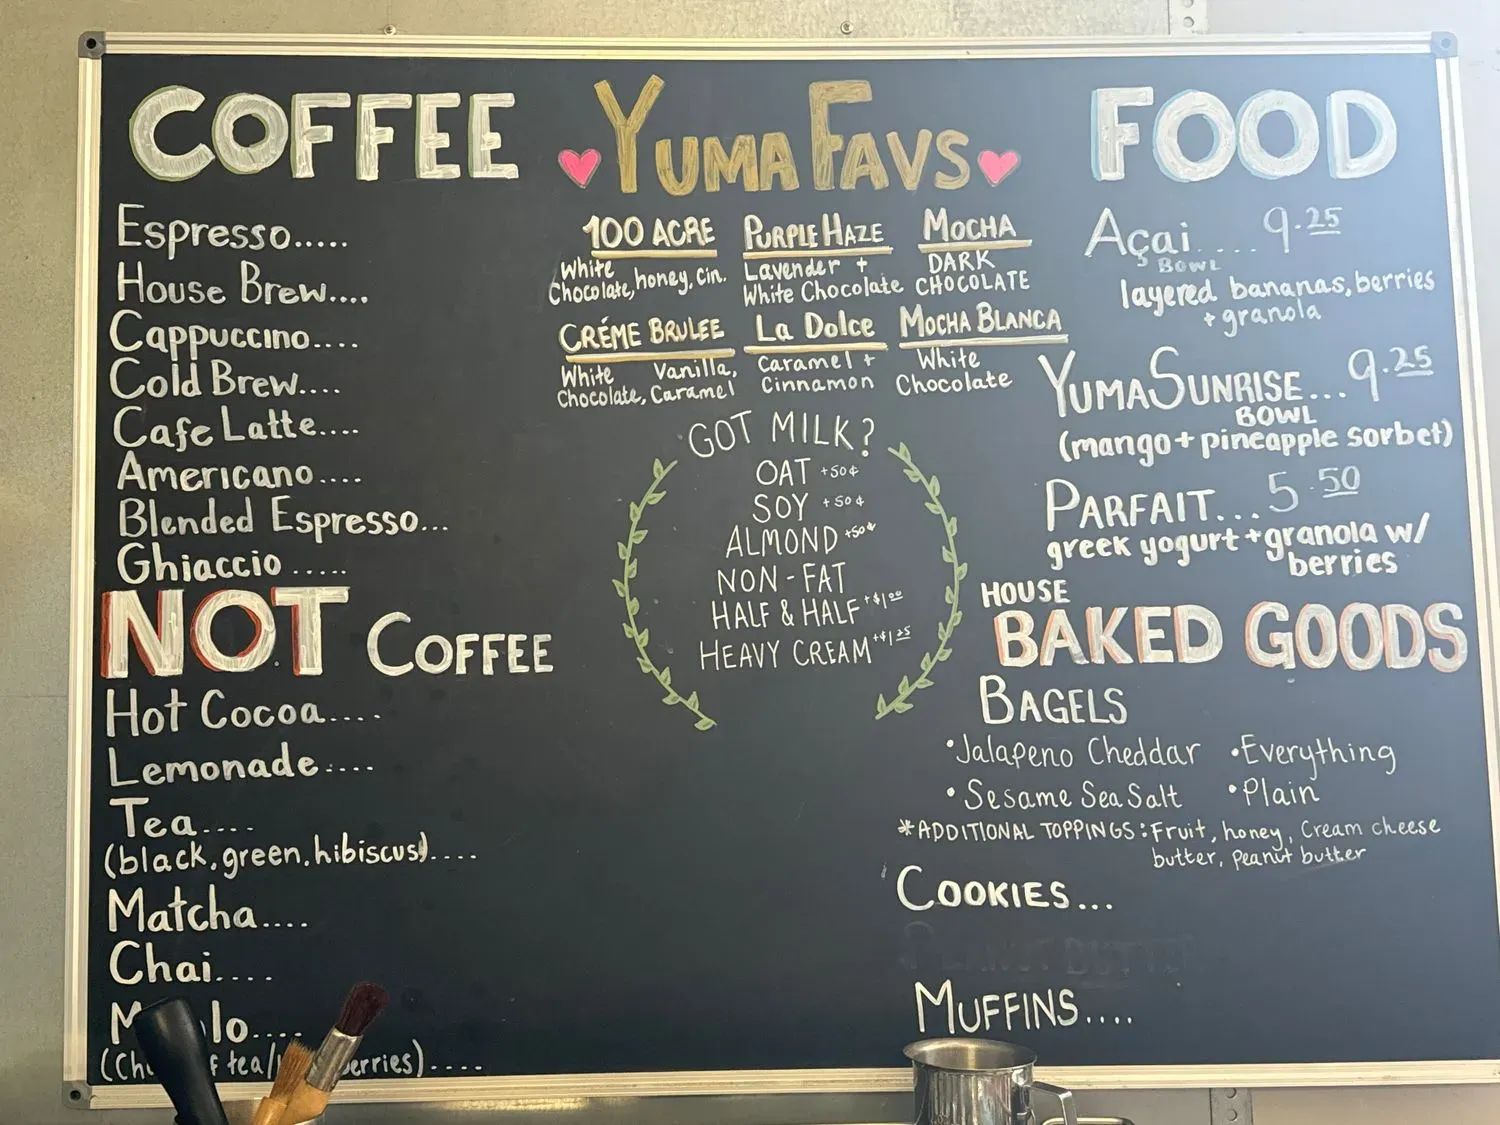 COFFEE
Espresso.....
House Brew....
Cappuccino....
Cold Brew....
Cafe Latte....
Americano....
Blended Espresso...
Ghiaccio .....
NOT COFFEE
Hot Cocoa....
Lemonade....
Tea....
(black, green, hibiscus)....
Matcha....
Chai....
lo....
tea/ erries)....
YUMA FAVS
100 ACRE
White
Chocolate, honey, Cin.
PURPLE HAZE
Lavender +
White Chocolate
MOCHA
DARK
CHOCOLATE
CRÉME BRULEE
White Vanilla,
Chocolate, Caramel
LA DOLCE
Caramel +
Cinnamon
MOCHA BLANCA
White
Chocolate
GOT MILK?
OAT +50¢
SOY +50¢
ALMOND +50¢
NON-FAT
HALF & HALF +$1.00
HEAVY CREAM +$1.25
FOOD
Açai.... 9.25
BOWL
layered bananas, berries
+ granola
YUMA SUNRISE... 9.25
BOWL
(mango + pineapple sorbet)
PARFAIT... 5.50
greek yogurt + granola w/
berries
HOUSE
BAKED GOODS
BAGELS
•Jalapeno Cheddar •Everything
•Sesame Sea Salt •Plain
*ADDITIONAL TOPPINGS: Fruit, honey, Cream cheese
butter, Peanut butter
COOKIES...
MUFFINS....